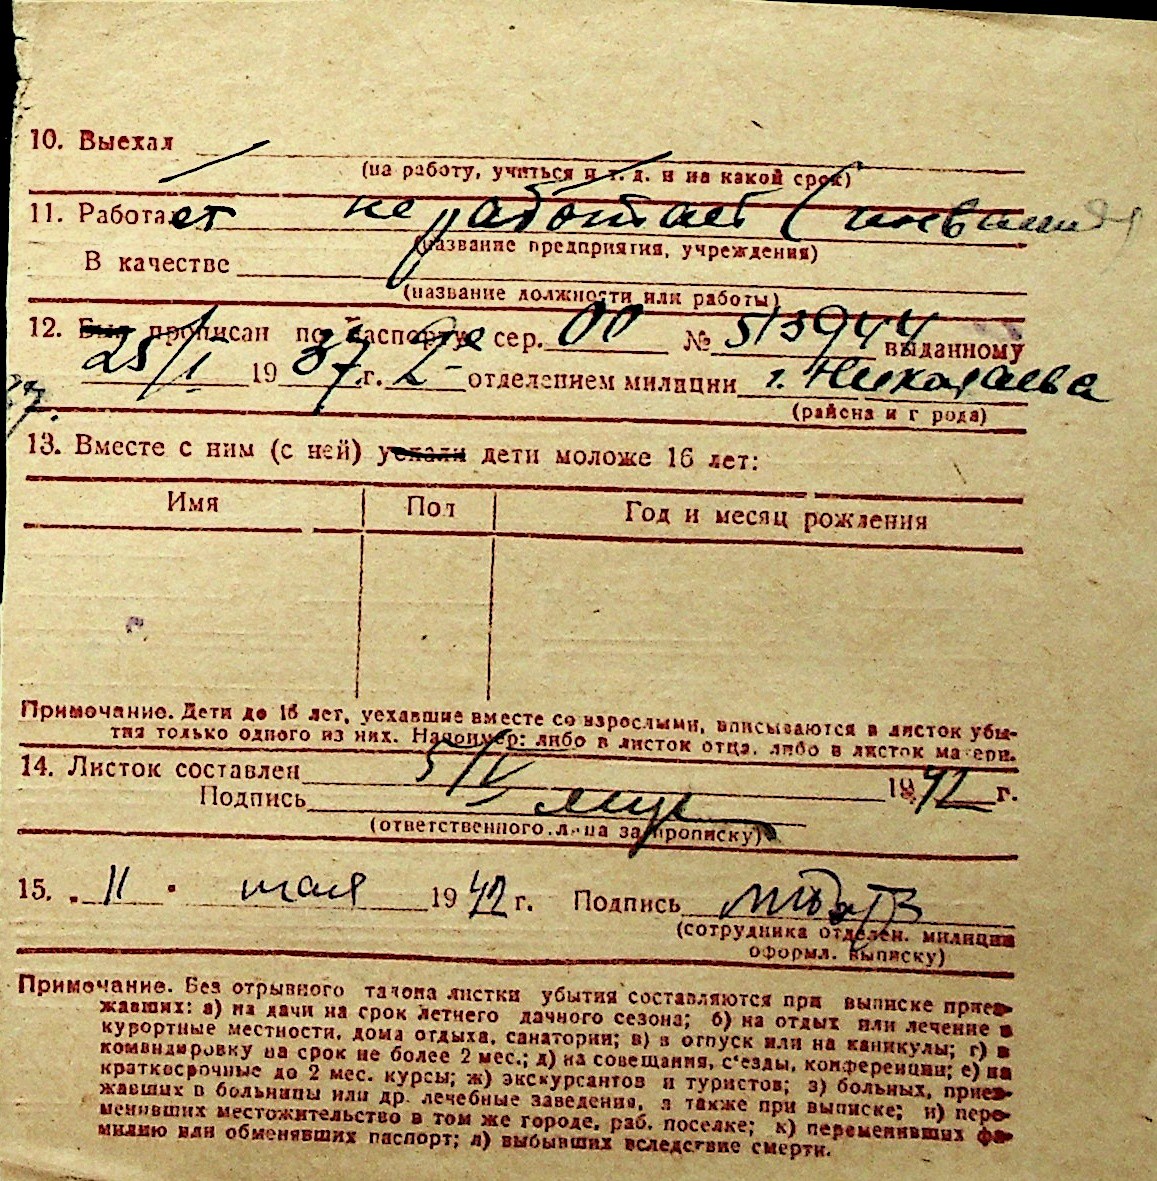 10. Выехал
(на работу, учиться и т. д. и на какой срок)
11. Работает не работает (инвалид
(название предприятия, учреждения)
В качестве
(название должности или работы)
12. Был прописан по паспорту сер. № 513944 выданному
25/I 1937 г. 2- отделением милиции г. Николаева
(района и города)
13. Вместе с ним (с ней) уехали дети моложе 16 лет:
Имя Пол Год и месяц рождения
Примечание. Дети до 16 лет, уехавшие вместе со взрослыми, вписываются в листок убы-
тия только одного из них. Например: либо в листок отца, либо в листок матери.
14. Листок составлен 5/V 1942 г.
Подпись
(ответственного лица за прописку)
15. „11" мая 1942 г. Подпись
(сотрудника отделен. милиции
оформл. выписку)
Примечание. Без отрывного талона листки убытия составляются при выписке приез-
жавших: а) на дачи на срок летнего дачного сезона; б) на отдых или лечение в
курортные местности, дома отдыха, санатории; в) в отпуск или на каникулы; г) в
командировку на срок не более 2 мес.; д) на совещания, с'езды, конференции; е) на
краткосрочные до 2 мес. курсы; ж) экскурсантов и туристов; з) больных, приез-
жавших в больницы или др. лечебные заведения, а также при выписке; и) пере-
менивших местожительство в том же городе, раб. поселке; к) переменивших фа-
милию или обменявших паспорт; л) выбывших вследствие смерти.